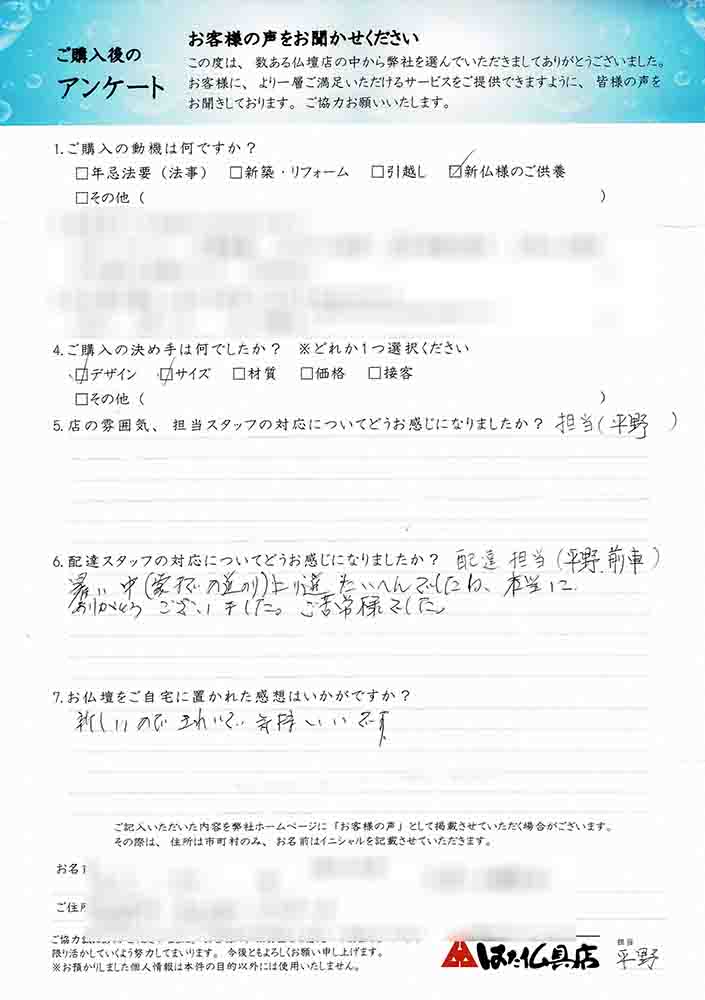 ご購入後の
アンケート
お客様の声をお聞かせください
この度は、数ある仏壇店の中から弊社を選んでいただきましてありがとうございました。
お客様に、より一層ご満足いただけるサービスをご提供できますように、皆様の声を
お聞きしております。ご協力お願いいたします。
1.ご購入の動機は何ですか？
□年忌法要（法事） □新築・リフォーム □引越し ☑新仏様のご供養
□その他（ ）
4.ご購入の決め手は何でしたか？ ※どれか1つ選択ください
☑デザイン ☑サイズ □材質 □価格 □接客
□その他（ ）
5.店の雰囲気、担当スタッフの対応についてどうお感じになりましたか？ 担当(平野 )
6.配達スタッフの対応についてどうお感じになりましたか？ 配達担当(平野.前車)
暑い中(家までの道のり)上り道たいへんでしたね、本当に
ありがとうございました。ご苦労様でした。
7.お仏壇をご自宅に置かれた感想はいかがですか？
新しいのできれいで気持いいです
ご記入いただいた内容を弊社ホームページに「お客様の声」として掲載させていただく場合がございます。
その際は、住所は市町村のみ、お名前はイニシャルを記載させていただきます。
お名
ご住
ご協力
限り活かしていくよう努力してまいります。今後ともよろしくお願い申し上げます。
※お預かりしました個人情報は本件の目的以外には使用いたしません。
はた仏具店
担当
平野